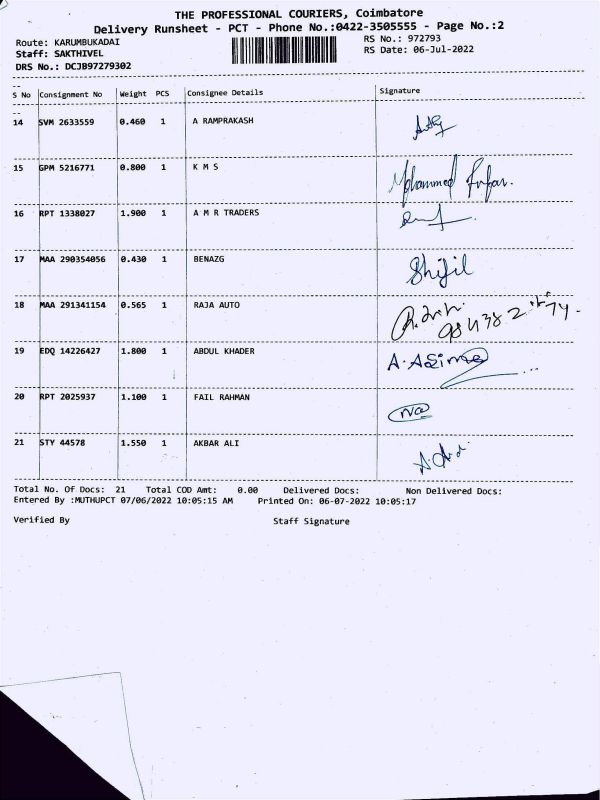 THE PROFESSIONAL COURIERS, Coimbatore
Delivery Runsheet - PCT - Phone No.:0422-3505555 - Page No.:2
Route: KARUMBUKADAI RS No.: 972793
Staff: SAKTHIVEL RS Date: 06-Jul-2022
DRS No.: DCJB97279302
S No Consignment No Weight PCS Consignee Details Signature
14 SVM 2633559 0.460 1 A RAMPRAKASH
15 GPM 5216771 0.800 1 K M S Mohammed
16 RPT 1338027 1.900 1 A M R TRADERS
17 MAA 290354056 0.430 1 BENAZG Shifil
18 MAA 291341154 0.565 1 RAJA AUTO
19 EDQ 14226427 1.800 1 ABDUL KHADER
20 RPT 2025937 1.100 1 FAIL RAHMAN
21 STY 44578 1.550 1 AKBAR ALI
Total No. Of Docs: 21 Total COD Amt: 0.00 Delivered Docs: Non Delivered Docs:
Entered By :MUTHUPCT 07/06/2022 10:05:15 AM Printed On: 06-07-2022 10:05:17
Verified By Staff Signature